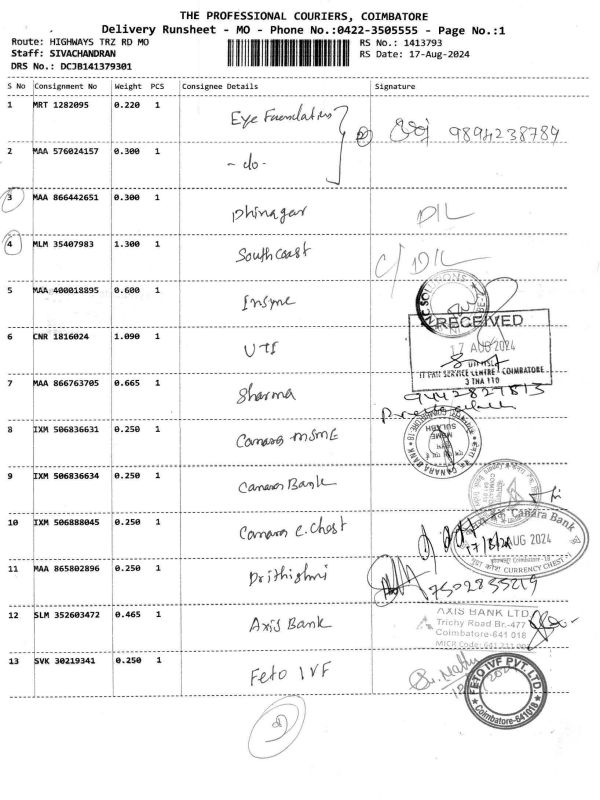 THE PROFESSIONAL COURIERS, COIMBATORE
Delivery Runsheet - MO - Phone No.:0422-3505555 - Page No.:1
Route: HIGHWAYS TRZ RD MO RS No.: 1413793
Staff: SIVACHANDRAN RS Date: 17-Aug-2024
DRS No.: DCJB141379301
S No Consignment No Weight PCS Consignee Details Signature
1 MRT 1282095 0.220 1 Eye Foundation 9894238789
2 MAA 576024157 0.300 1 - do -
3 MAA 866442651 0.300 1 Dhinagar D/L
4 MLM 35407983 1.300 1 South Coast C/ D/L
5 MAA 400018895 0.600 1 Insme
RECEIVED
6 CNR 1816024 1.090 1 UTI
17 AUG 2024
UTIITSL
IT PAN SERVICE CENTRE - COIMBATORE
3 TNA 110
7 MAA 866763705 0.665 1 Sharma 9442827813
8 IXM 506836631 0.250 1 Canara MSME
CANARA BANK
MSME SULABH
9 IXM 506836634 0.250 1 Canara Bank
10 IXM 506888045 0.250 1 Canara C. Chest
Canara Bank
17/8/24 AUG 2024
CURRENCY CHEST
11 MAA 865802896 0.250 1 Drithishmi 7502835219
12 SLM 352603472 0.465 1 Axis Bank
AXIS BANK LTD
Trichy Road Br.-477
Coimbatore-641 018
MICR Code: 641 211 00
13 SVK 30219341 0.250 1 Feto IVF
FETO IVF PVT. LTD.
Coimbatore-641018